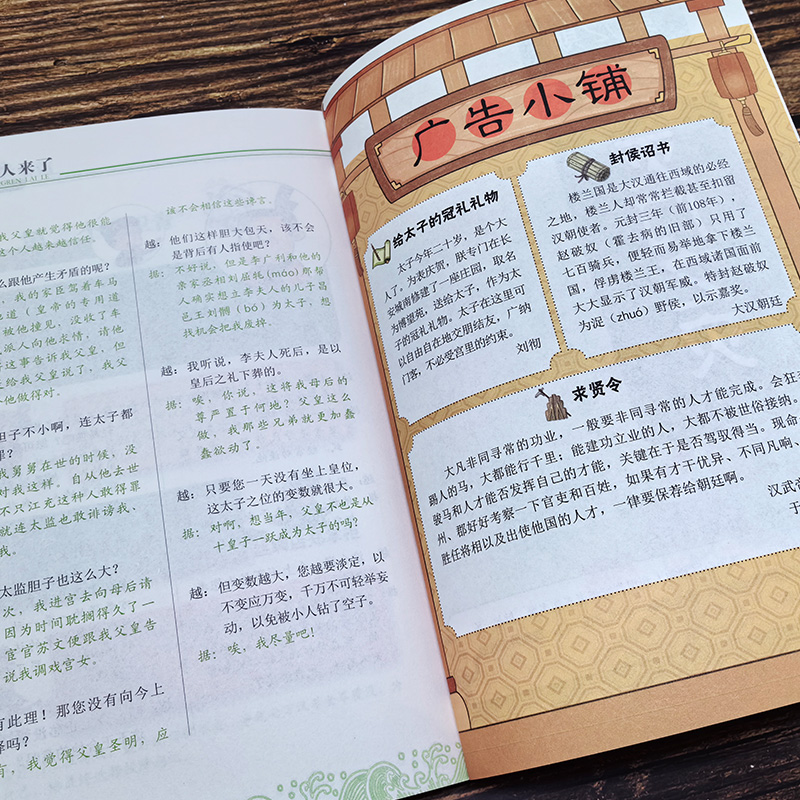 人来了
GREN LAI LE
我父皇就觉得他很能
这个人越来越信任。
么跟他产生矛盾的呢？
，我的家臣驾着车马
道（皇帝的专用道
被他撞见，没收了车
派人向他求情，请他
这事告诉我父皇，但
给我父皇说了，我父
他做得对。
胆子不小啊，连太子都
罪？
我舅舅在世的时候，没
对我这样。自从他去世
不只江充这种人敢得罪
就连太监也敢诽谤我、
我。
太监胆子也这么大？
次，我进宫去向母后请
因为时间耽搁得久了一
宦官苏文便跟我父皇告
说我调戏宫女。
有此理！那您没有向今上
释吗？
有，我觉得父皇圣明，应
该不会相信这些谗言。
越：他们这样胆大包天，该不会
是背后有人指使吧？
据：不好说，但是李广利和他的
亲家丞相刘屈牦（máo）那帮
人确实想立李夫人的儿子昌
邑王刘髆（bó）为太子，想
找机会把我废掉。
越：我听说，李夫人死后，是以
皇后之礼下葬的。
据：唉，你说，这将我母后的
尊严置于何地？父皇这么
做，我那些兄弟就更加蠢
蠢欲动了。
越：只要您一天没有坐上皇位，
这太子之位的变数就很大。
据：对啊，想当年，父皇不也是从
十皇子一跃成为太子的吗？
越：但变数越大，您越要淡定，以
不变应万变，千万不可轻举妄
动，以免被小人钻了空子。
据：唉，我尽量吧！
广告小铺
给太子的冠礼礼物
太子今年二十岁，是个大
人了，为表庆贺，朕专门在长
安城南修建了一座庄园，取名
为博望苑，送给太子，作为太
子的冠礼礼物。太子在这里可
以自由自在地交朋结友，广纳
门客，不必受宫里的约束。
刘彻
封侯诏书
楼兰国是大汉通往西域的必经
之地，楼兰人却常常拦截甚至扣留
汉朝使者。元封三年（前108年），
赵破奴（霍去病的旧部）只用了
七百骑兵，便轻而易举地拿下楼兰
国，俘虏楼兰王，在西域诸国面前
大大显示了汉朝军威。特封赵破奴
为浞（zhuó）野侯，以示嘉奖。
大汉朝廷
求贤令
大凡非同寻常的功业，一般要非同寻常的人才能完成。会狂奔
踢人的马，大都能行千里；能建功立业的人，大都不被世俗接纳。
骏马和人才能否发挥自己的才能，关键在于是否驾驭得当。现命
州、郡好好考察一下官吏和百姓，如果有才干优异、不同凡响、
胜任将相以及出使他国的人才，一律要保荐给朝廷啊。
汉武帝